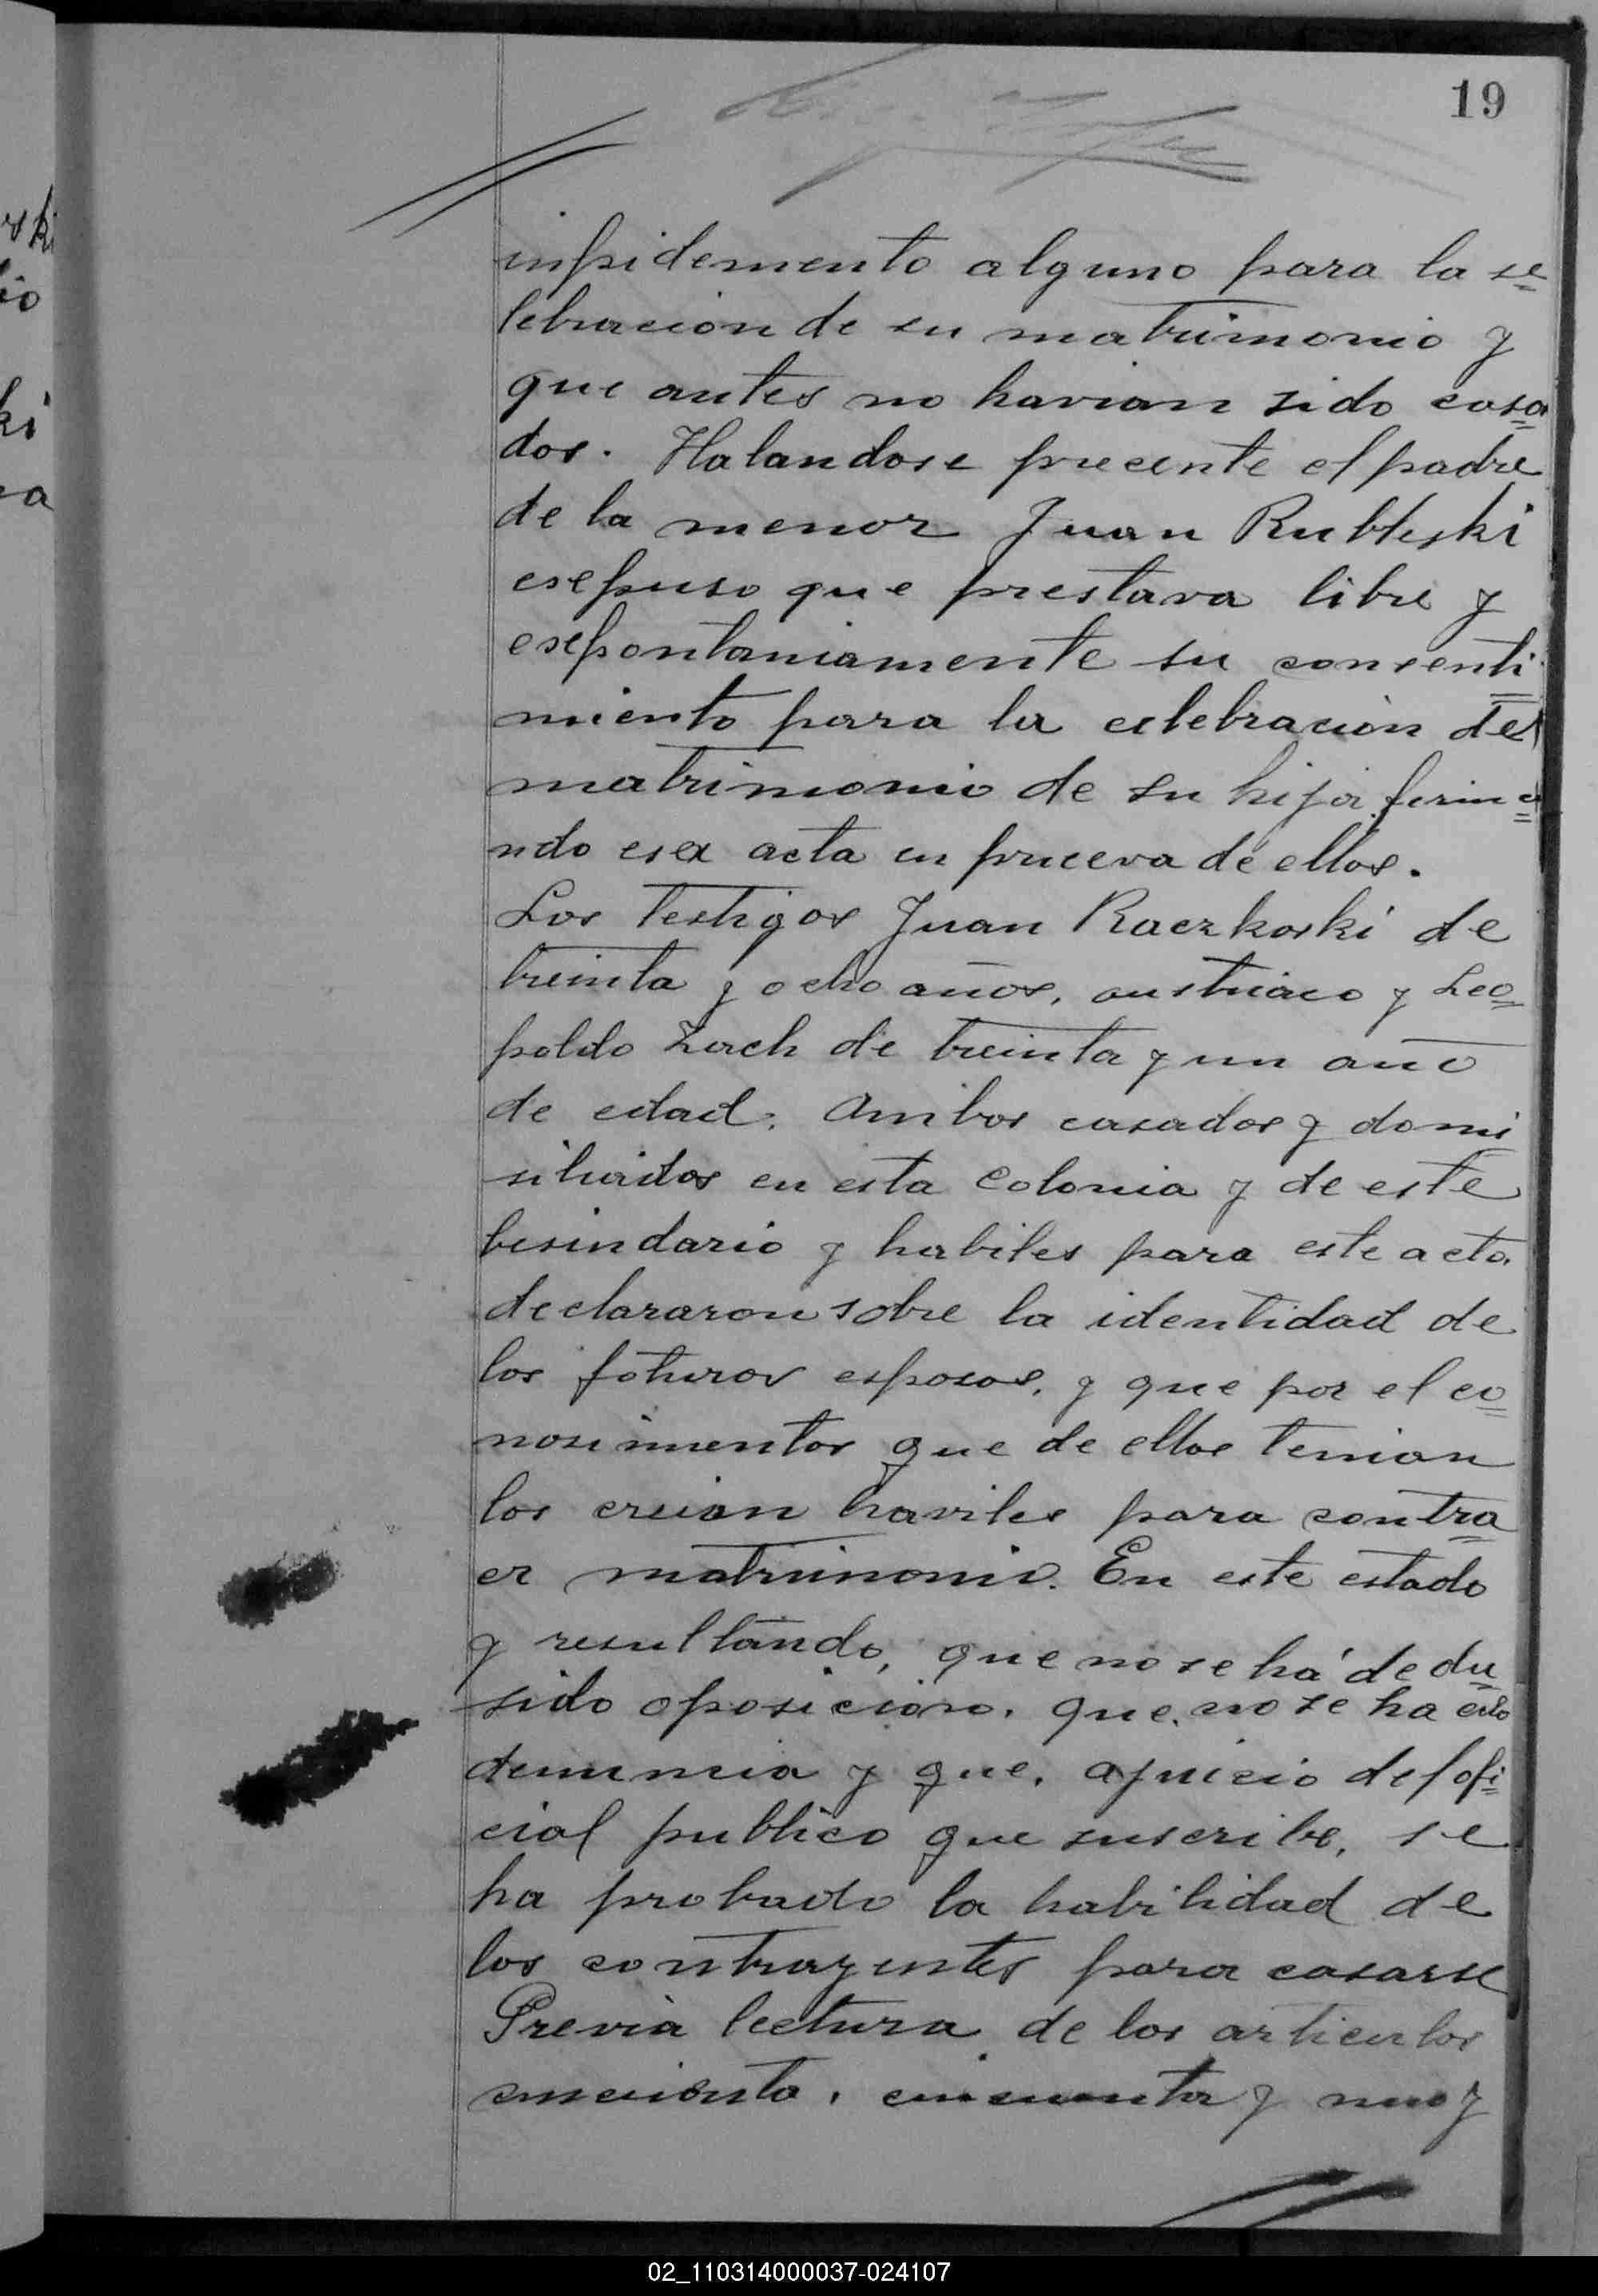 19
inpidemento alguno para la se
lebracion de su matrimonio y
que antes no havian sido casa
dos. Halandose precente el padre
de la menor Juan Rubleski
esepuso que prestava libre y
esepontaniamente su consenti
miento para la celebración del
matrimonio de su hija firma
ndo esa acta en prueva de ellos.
Los testigos Juan Raczkoski de
treinta y ocho años, austriaco y Leo
poldo Zach de treinta y un año
de edad. Ambos casados y domi
siliados en esta Colonia y de este
besindario y habiles para este acto.
declararon sobre la identidad de
los foturos esposos, y que por el co
nosimientos que de ellos tenian
los creian haviles para contra
er matrimonio. En este estado
y resultando, que no se há dedu
sido oposicion. que. no se ha
denuncia y que. a juicio del ofi
cial publico que suscribe, se
ha probado la habilidad de
los contrayentes para casarse
Previa lectura de los articulos
cincuenta y uno y
rski
io
ki
a
02_110314000037-024107